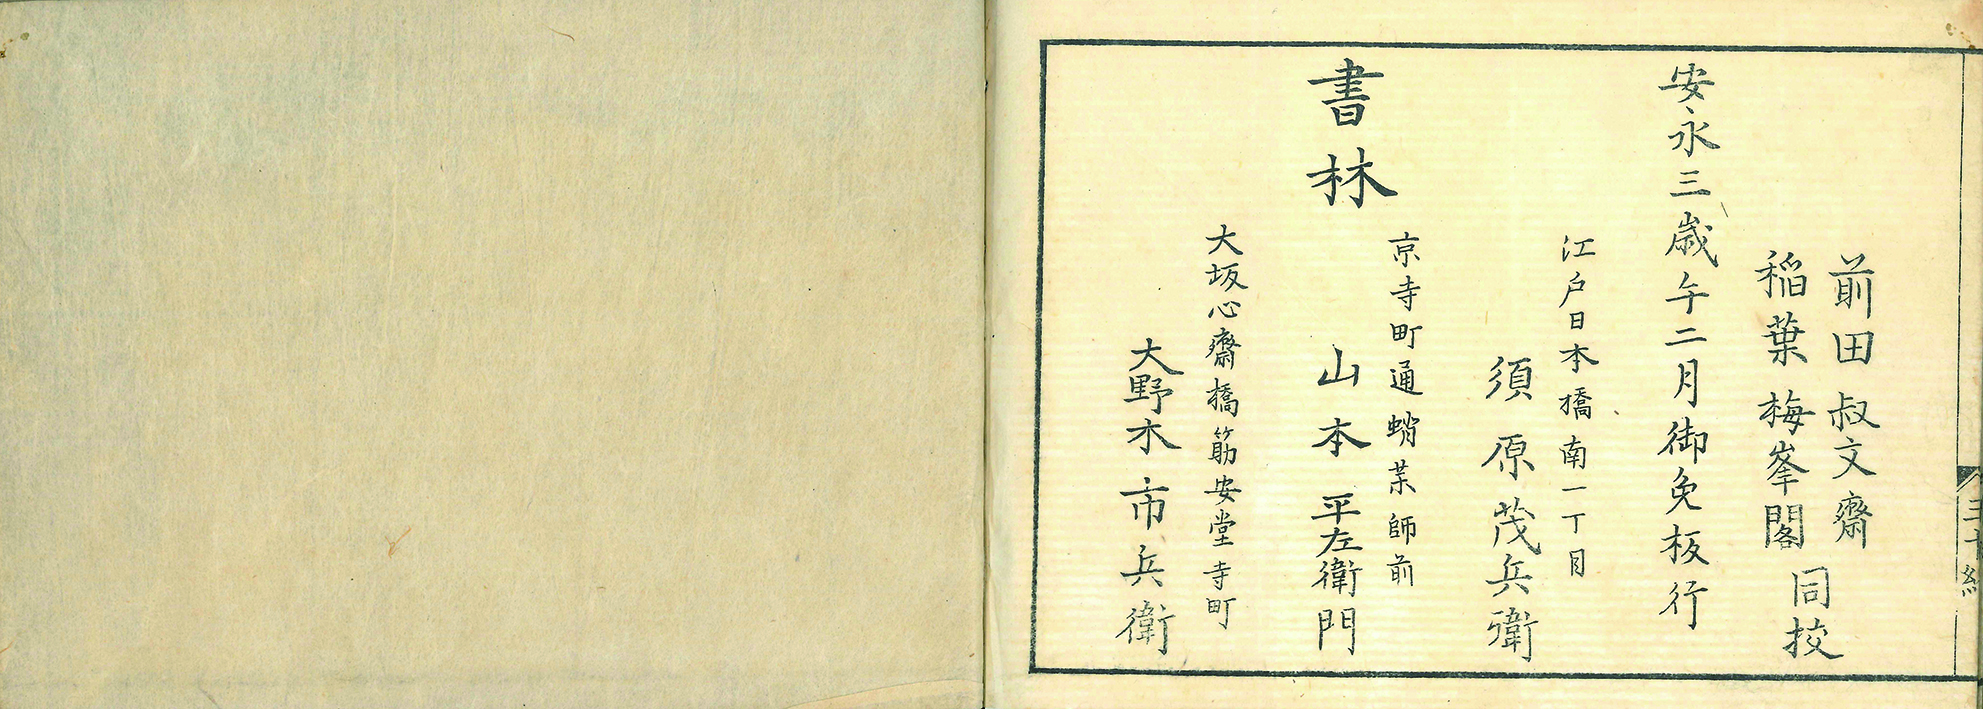 前田叔文齋
稲葉梅峯閣
同校
安永三歳午二月御免板行
江戸日本橋南一丁目
須原茂兵衛
書林
京寺町通蛸薬師前
山本平左衛門
大坂心齋橋筋安堂寺町
大野木市兵衛
三十終